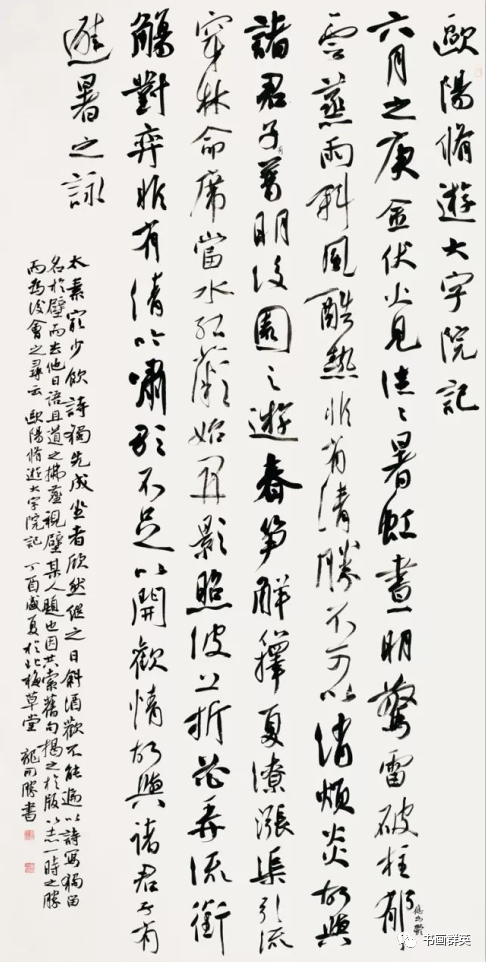 歐陽脩遊大字院記
六月之庚金伏火見往往暑虹晝明驚雷破柱郁
雲蒸雨斜風酷熱非有清勝不可以消煩炎故與
諸君子普明後園之遊春筍解籜夏潦漲渠引流
穿林命席當水紅薇始開影照波上折花弄流銜
觴對弈非有清吟嘯歌不足以開歡情故與諸君子有
避暑之詠
太素最少飲詩獨先成坐者欣然繼之日斜酒歡不能遍以詩寫獨留
名於壁而去他日語且道之拂塵視壁某人題也因共索舊句揭之於版以志一時之勝
而為後會之尋云 歐陽脩遊大字院記 丁酉盛夏於北梅草堂 龍開勝書
书画群英